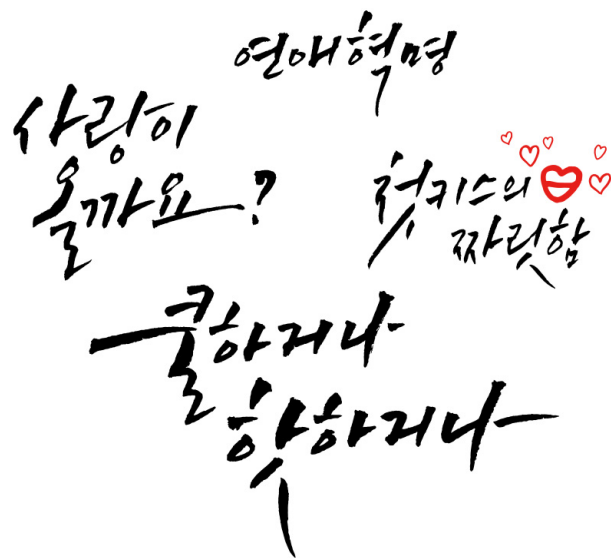 연애혁명
사랑이
올까요?
첫키스의
짜릿함
쿨하거나
핫하거나